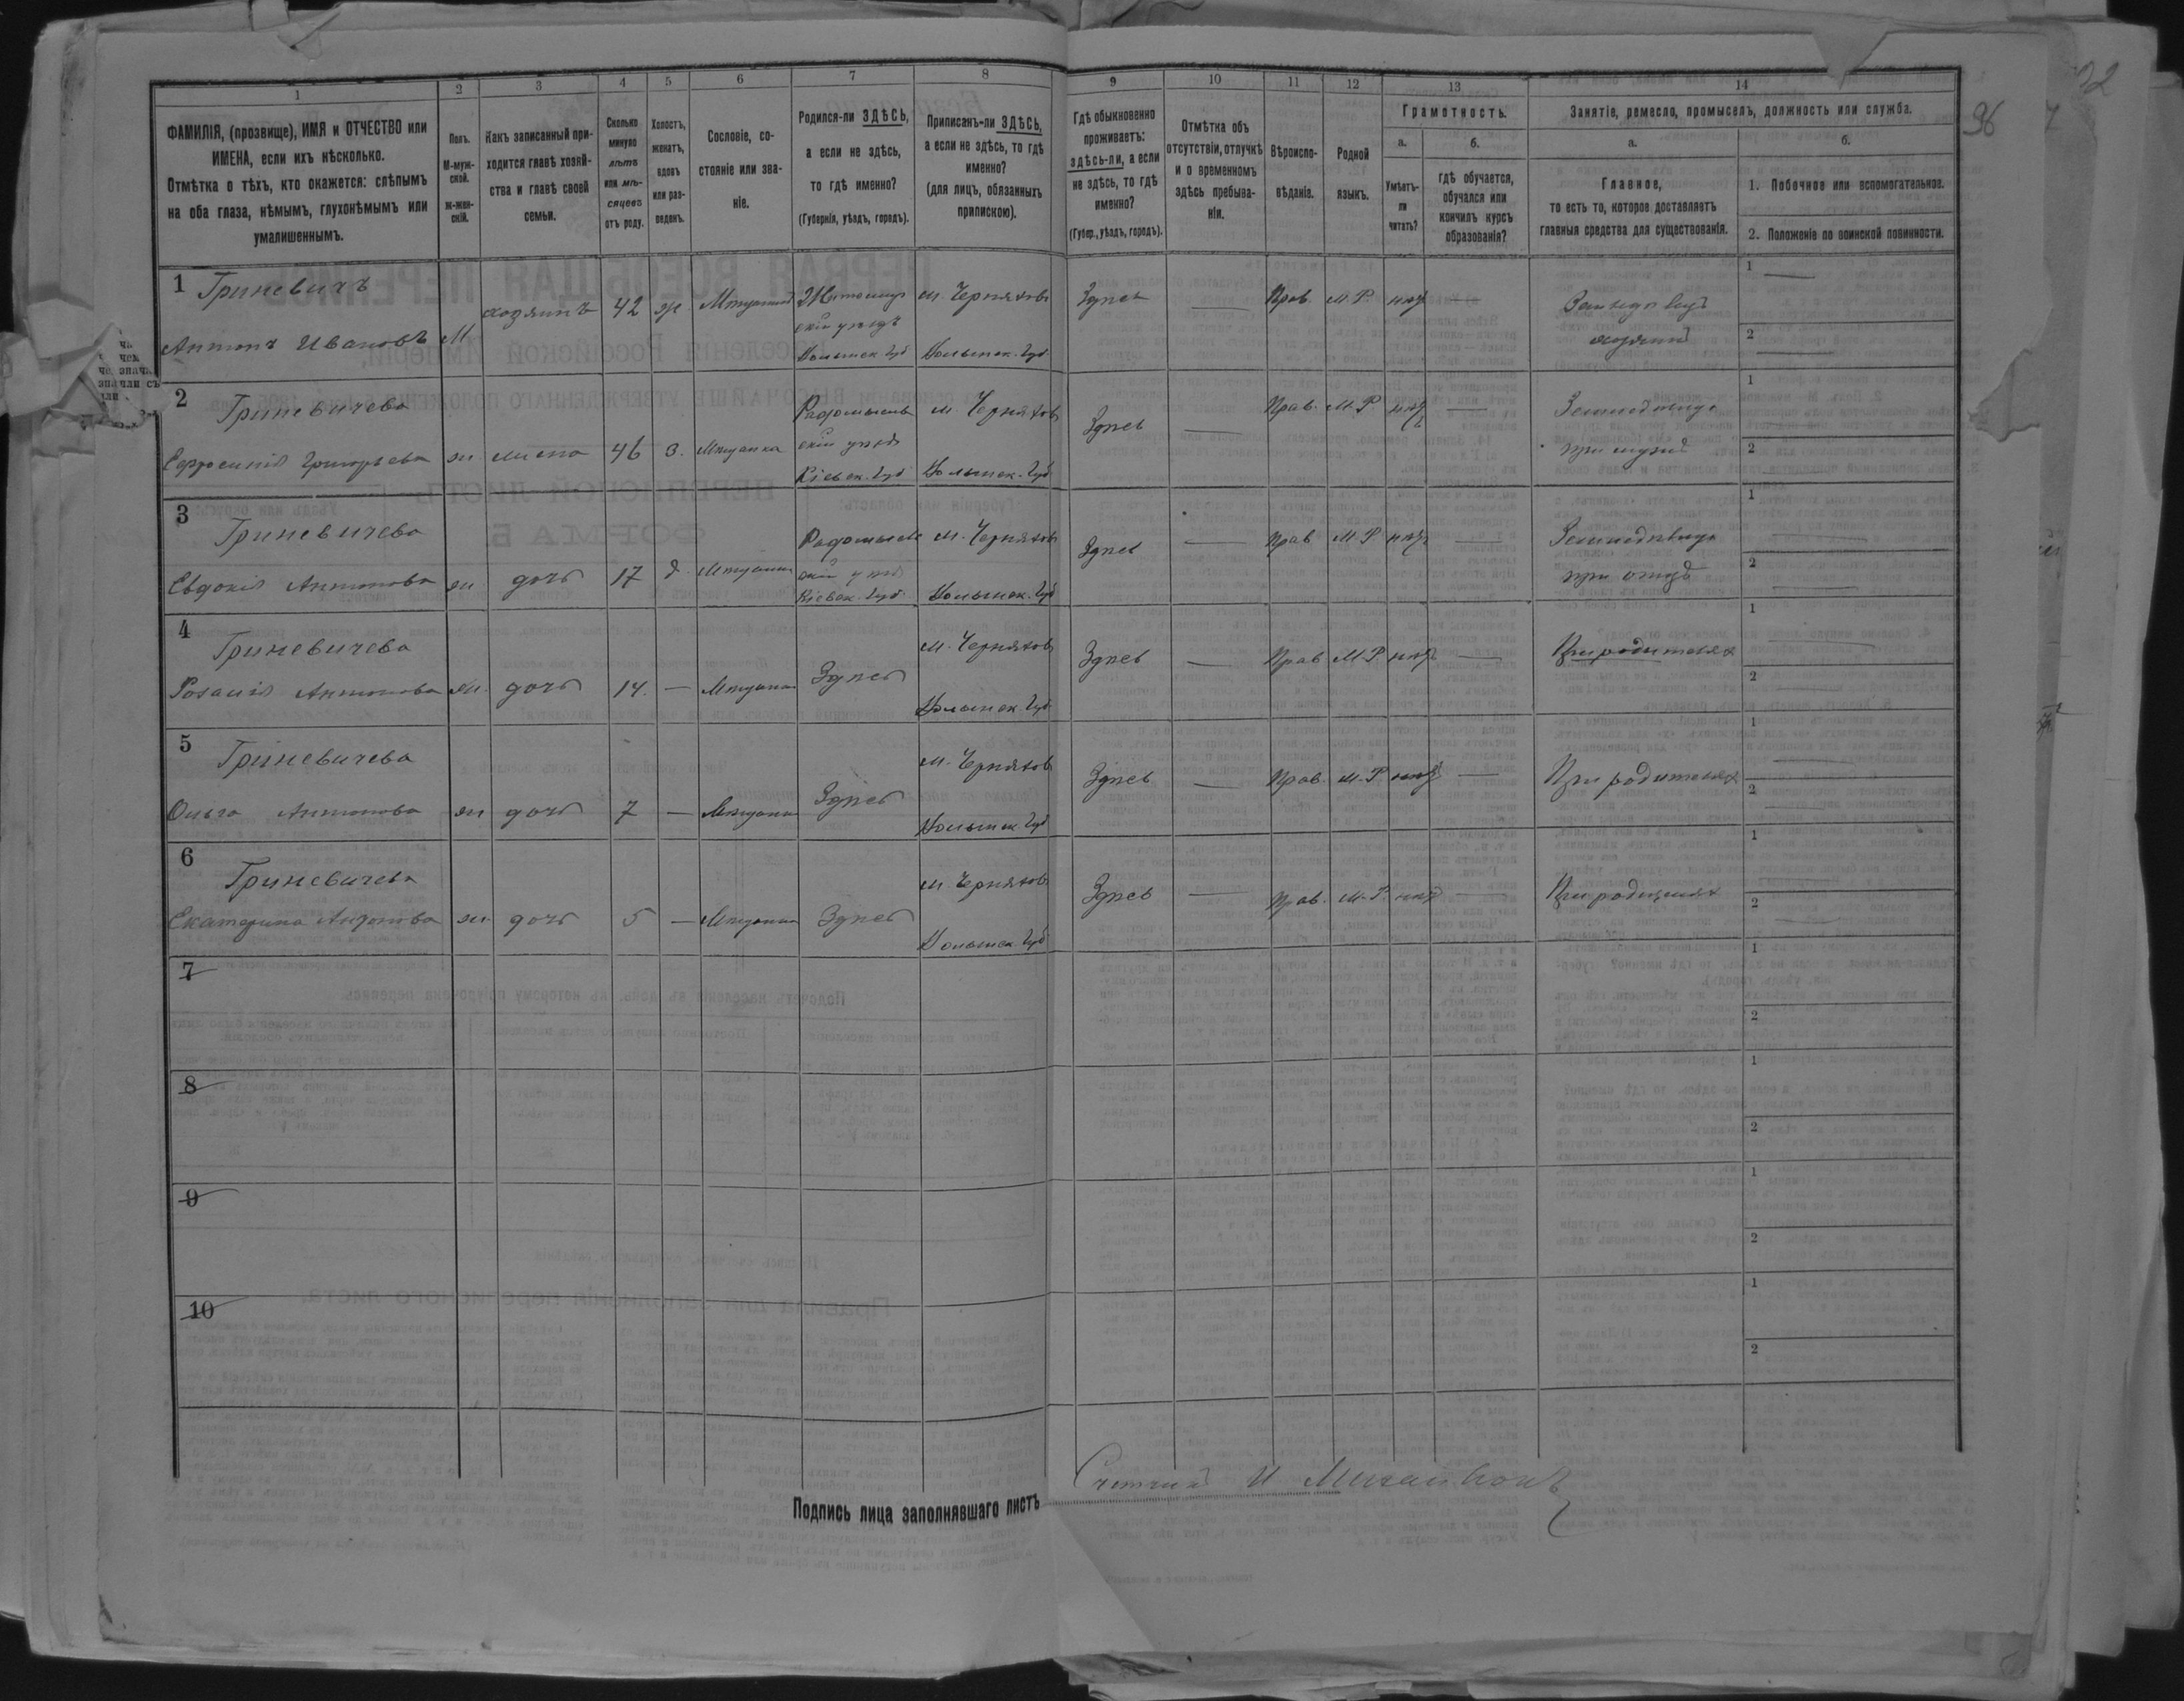 1 2 3 4 5 6 7 8 9 10 11 12 13 14
ФАМИЛІЯ, (прозвище), ИМЯ и ОТЧЕСТВО или
ИМЕНА, если ихъ нѣсколько.
Отмѣтка о тѣхъ, кто окажется: слѣпымъ
на оба глаза, нѣмымъ, глухонѣмымъ или
умалишеннымъ.
Полъ.
М-муж-
ской.
ж-жен-
скій.
Какъ записанный при-
ходится главѣ хозяй-
ства и главѣ своей
семьи.
Сколько
минуло
лѣтъ
или мѣ-
сяцевъ
отъ роду.
Холостъ,
женатъ,
вдовъ
или раз-
веденъ.
Сословіе, со-
стояніе или зва-
ніе.
Родился-ли ЗДѢСЬ,
а если не здѣсь,
то гдѣ именно?
(Губернія, уѣздъ, городъ).
Приписанъ-ли ЗДѢСЬ,
а если не здѣсь, то гдѣ
именно?
(для лицъ, обязанныхъ
припискою).
Гдѣ обыкновенно
проживаетъ:
здѣсь-ли, а если
не здѣсь, то гдѣ
именно?
(Губер., уѣздъ, городъ).
Отмѣтка объ
отсутствіи, отлучкѣ
и о временномъ
здѣсь пребыва-
ніи.
Вѣроиспо-
вѣданіе.
Родной
языкъ.
Грамотность.
а.
Умѣетъ-
ли
читать?
б.
гдѣ обучается,
обучался или
кончилъ курсъ
образованія?
Занятіе, ремесло, промыселъ, должность или служба.
а.
Главное,
то есть то, которое доставляетъ
главныя средства для существованія.
б.
1. Побочное или вспомогательное.
2. Положеніе по воинской повинности.
96
32
1 Гриневичъ
Антонъ Ивановъ М хозяинъ 42 ж. Мѣщанинъ Житомир
скій уѣздъ
Волынск. Губ м. Черняховъ
Волынск. Губ Здѣсь — Прав. М.Р. нѣтъ —
хозяинъ
1 —
2 —
2 Гриневичева
Ефросинія Григорьева ж. жена 46 З. Мѣщанка Радомысль
скій уѣздъ
Кіевск. Губ м. Черняховъ
Волынск. Губ Здѣсь — Прав. М.Р. нѣтъ —
при мужѣ
1
2
3 Гриневичева
Евдокія Антонова ж. дочь 17 д. Мѣщанка Радомысль
скій уѣзд
Кіевск. Губ. м. Черняховъ
Волынск. Губ Здѣсь — Прав М.Р. нѣтъ —
при отцѣ
1 —
2 —
4 Гриневичева
Антонова ж. дочь 14. — Мѣщанка Здѣсь м. Черняховъ
Волынск. Губ Здѣсь — Прав М.Р нѣтъ — При родителях
1 —
2 —
5 Гриневичева
Ольга Антонова ж дочь 7 — Мѣщанка Здѣсь м. Черняховъ
Волынск Губ Здѣсь — Прав. М.Р нѣтъ — При родителях
1 —
2 —
6 Гриневичева
Екатерина Антонова ж. дочь 5 — Мѣщанка Здѣсь м. Черняховъ
Волынск Губ Здѣсь — Прав. М.Р. нѣтъ — При родителях
1
2 —
7
1
2
8
1
2
9
1
2
10
1
2
Подпись лица заполнявшаго листъ
Счетчикъ И